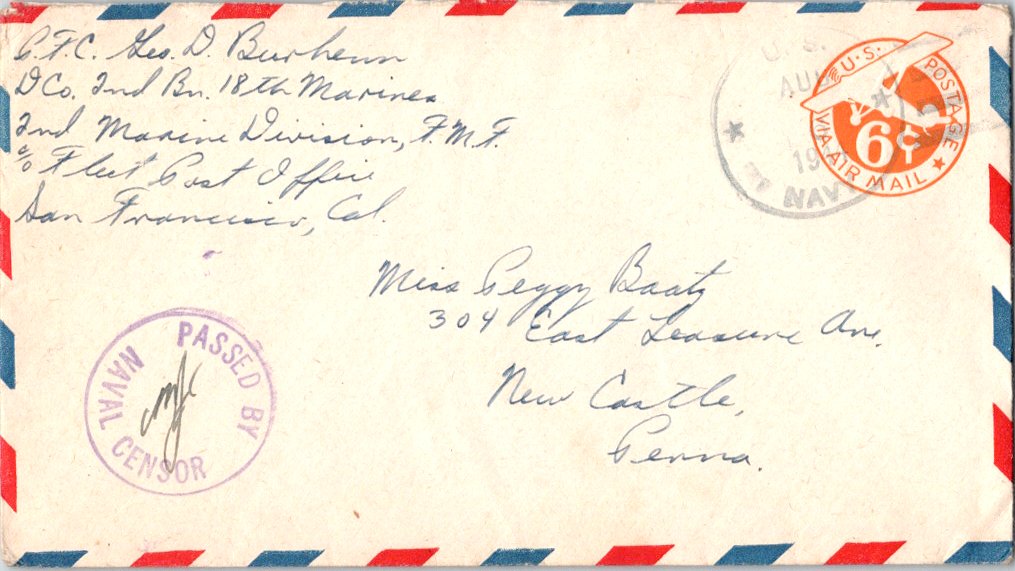 P.F.C. Geo. D. Burhenn
D Co. 2nd Bn. 18th Marines
2nd Marine Division, F.M.F.
c/o Fleet Post Office
San Francisco, Cal.
U.S.
AUG
19
NAVY
U.S. POSTAGE
VIA AIR MAIL
6¢
Miss Peggy Baatz
304 East Leasure Ave.
New Castle,
Penna.
PASSED BY
NAVAL CENSOR